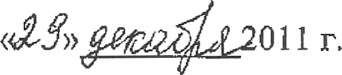 «29» декабря 2011 г.